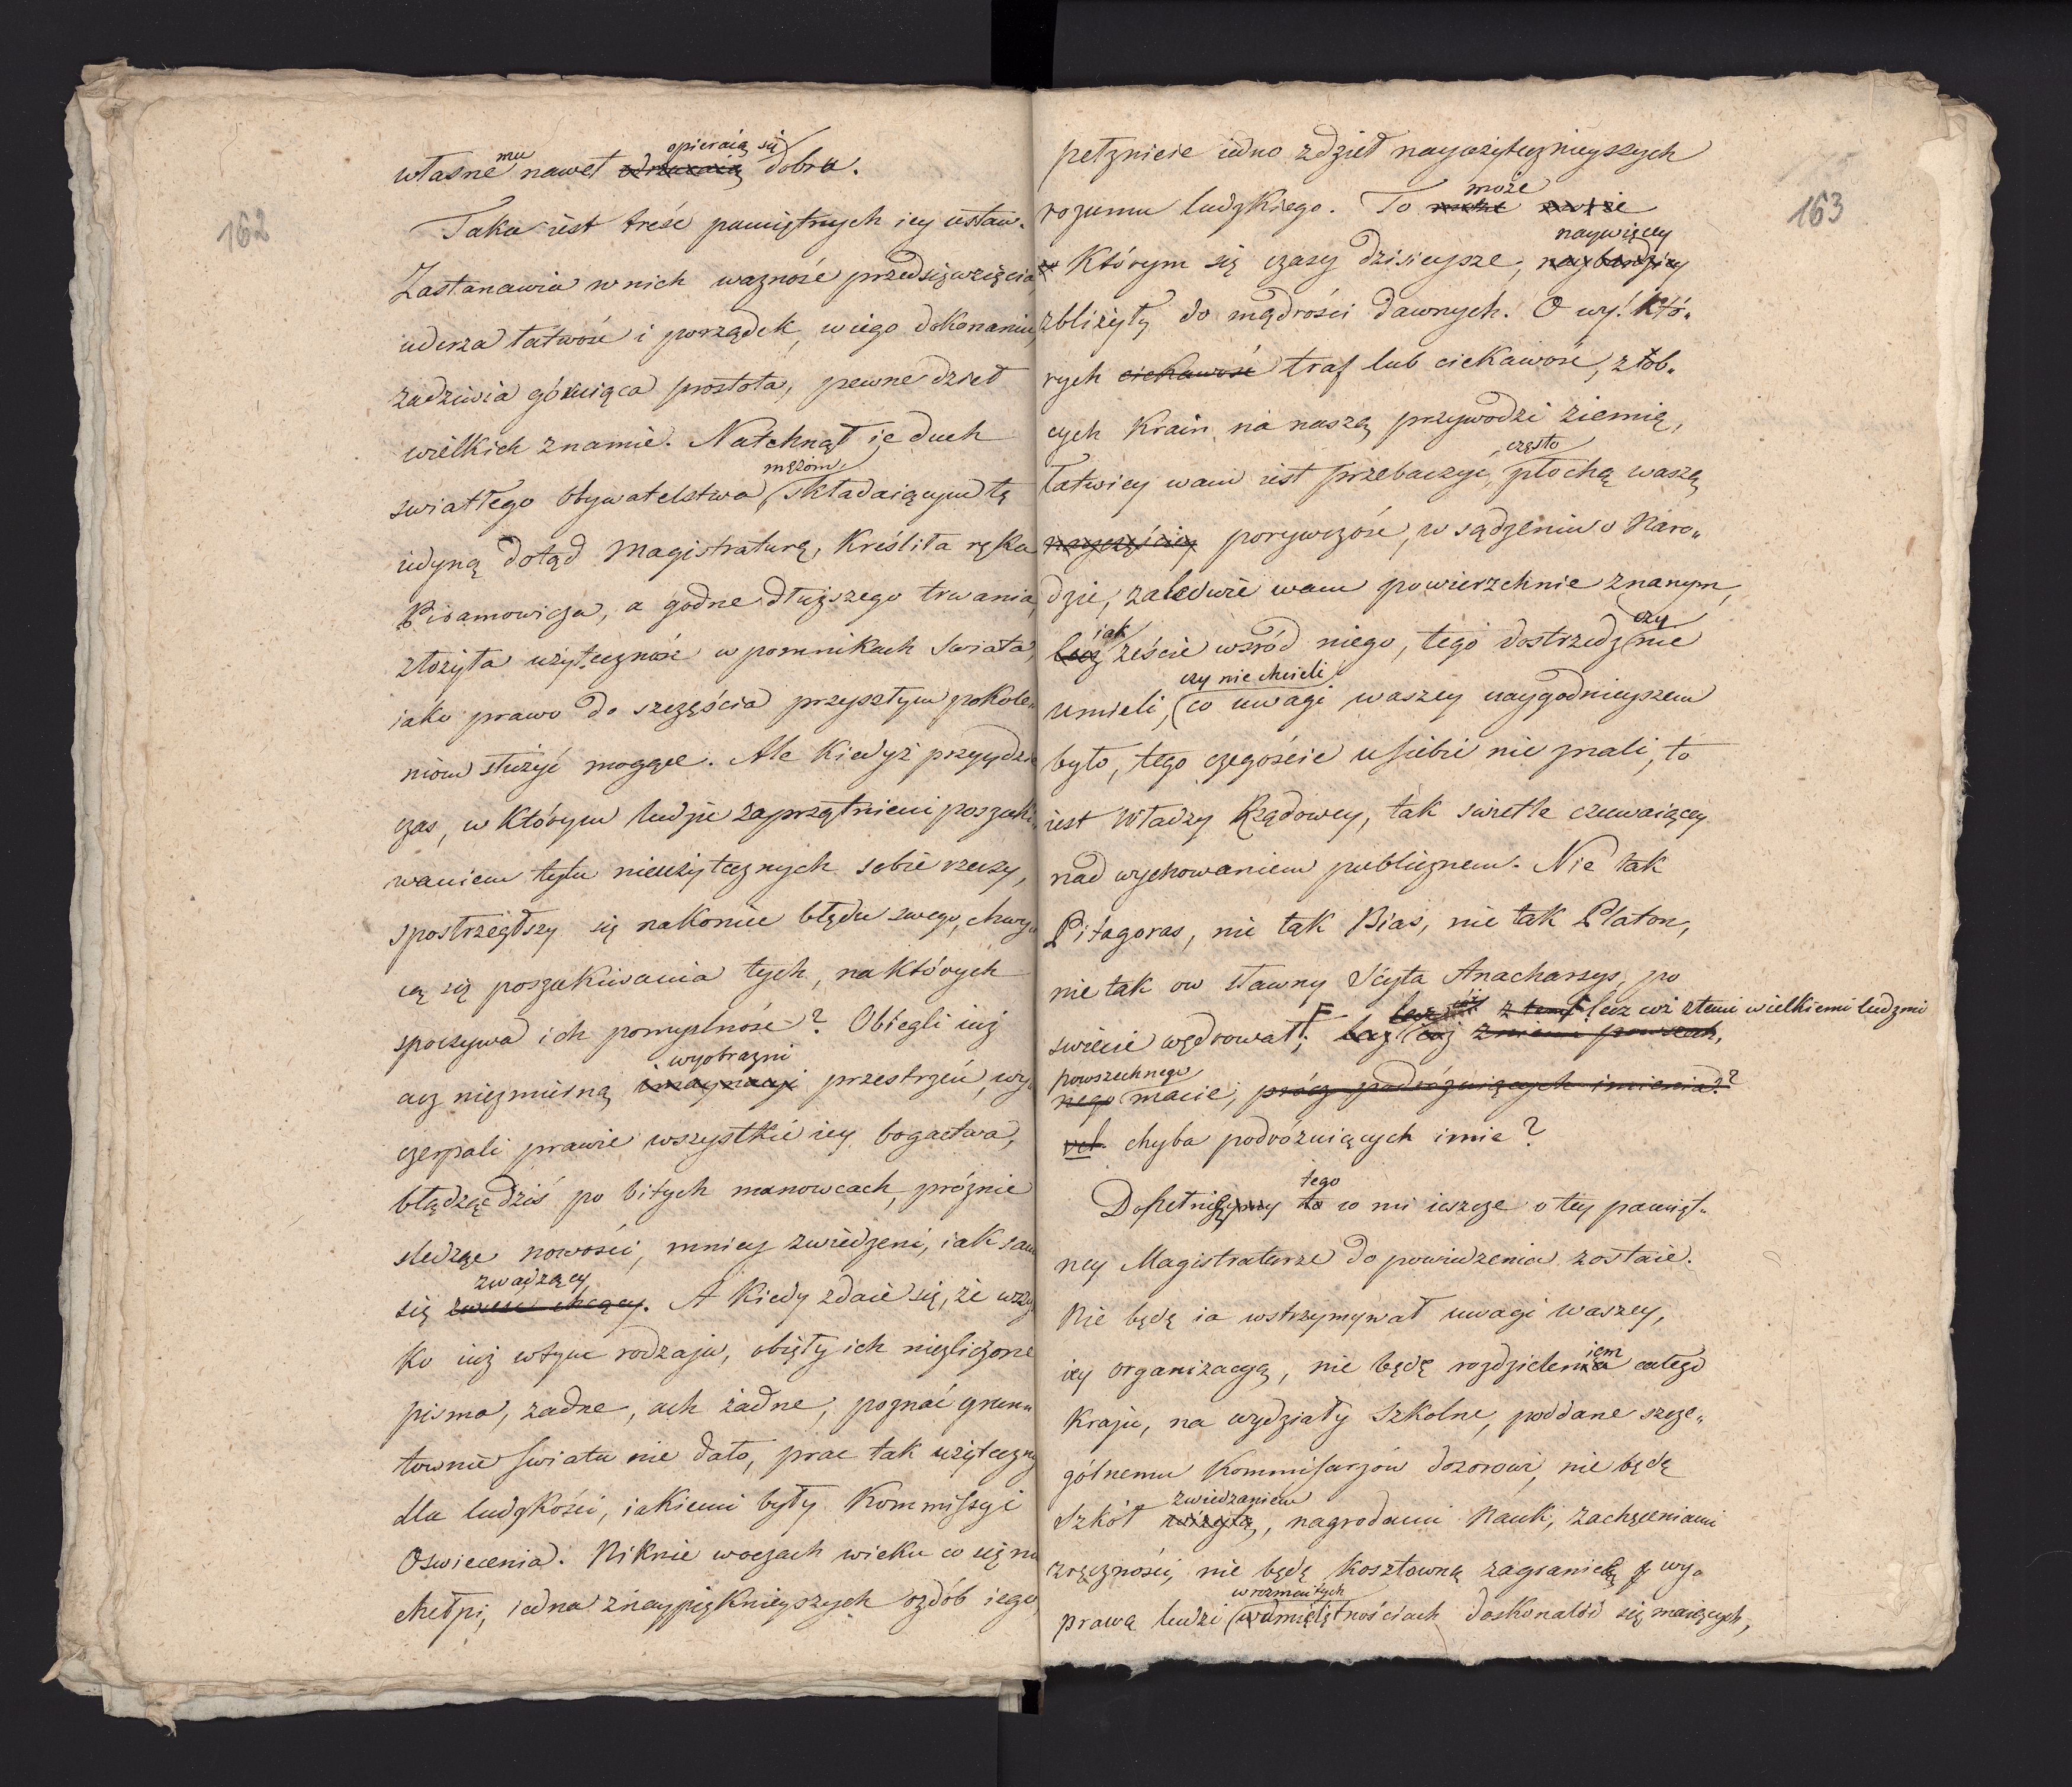 162
opieraią się
mu
własne nawet odrzucaią dobra.
Taka iest treść pamiętnych iey ustaw.
Zastanawia w nich ważność przedsięwzięcia,
uderza łatwość i porządek, w iego dokonaniu,
zadziwia góruiąca prostota, pewne dzieł
wielkich znamie. Natchnął ie duch
mężom
swiatłego Obywatelstwa składaiącym tę
iedyną dotąd Magistraturę, Kreśliła ręka
Piramowicza, a godne dłuższego trwania,
złożyła użyteczność w pomnikach swiata,
iako prawo do szczęścia przyszłym pokole„
niom służyć mogące. Ale Kiedyż przyydzie
czas, w Którym ludzie zaprzątnieni poszuki„
waniem tylu nieużytecznych sobie rzeczy,
spostrzegłszy się nakoniec błędu swego, chwy„
cą się poszukiwania tych, na Których
spoczywa ich pomyślność? Obiegli iuż
wyobrazni
acz niezmierną imaynacyi przestrzeń, wy„
czerpali prawie wszystkie iey bogactwa,
błądząc dziś po bitych manowcach, próżnie
sledząc nowości, mniey zwiedzeni, iak sam
zwadzący
się zwieść chcący. A Kiedy zdaie się, że wszy
Ko iuż wtym rodzaju, obięły ich niezliczone
pisma, żadne, ach żadne, poznać grun„
townie swiatu nie dało, prac tak użyteczny
dla ludzkości, iakiemi były Kommissyi
Oswiecenia. Niknie w oczach wieku co się nu
chełpi, iedna z naypięknieyszych ozdób iego,
163
pełznicie iedno z dzieł nayużytecznieyszych
może
rozumu ludzkiego. To
naywięcey
w Którym się czasy dzisieysze, naybardziey
zbliżyły do mądrości dawnych. O wy! Któ„
rych ciekawość traf lub ciekawość, z ob„
cych Krain na naszą przywodzi ziemię,
często
łatwiey wam iest przebaczyć, płochą waszą
nayczęściey porywczość, w sądzeniu o Naro„
dzie, zaledwie wam powierzchnie znanym,
iak czy
lecz żeście wśród niego, tego dostrzedz nie
czy nie chcieli
umieli, co uwagi waszey naygodnieyszem
było, tego czegoście u siebie nie znali, to
iest Władzy Rządowey, tak swietle czuwaiącey
nad wychowaniem publicznem. Nie tak
Pitagoras, nie tak Bias, nie tak Platon,
nie tak ow sławny Scyta Anacharsys, po
lecz cóż z temi wielkiemi ludzmi
swiecie wędrował; lecz coż z niemi powszech„
powszechnego
nego macie, prócz podróżuiących imienia?
vel chyba podróżuiących imie?
tego
Dopełniymy to co mi ieszcze o tey pamięt„
ney Magistraturze do powiedzenia zostaie.
Nie będę ia wstrzymywał uwagi waszey,
iem
iey organizacyą, nie będę rozdzielenia całego
Kraju, na wydziały Szkolne, poddane szcze„
gólnemu Kommissarzów dozorowi, nie będę
zwiedzaniem
szkół wizytą, nagrodami Nauk, zachęceniami
zręczności, nie będę kosztowną zagranicę wy„
w rozmaitych
prawą ludzi w umieiętnościach doskonalić się maiących,